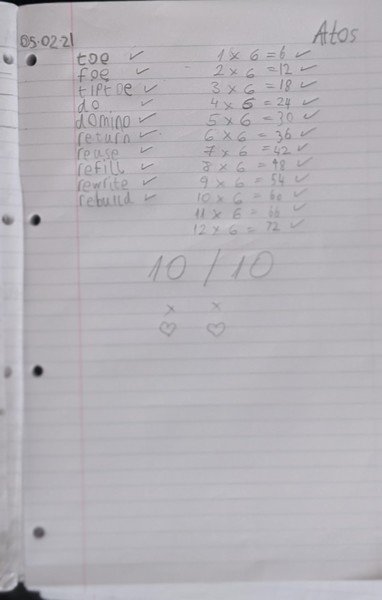 05.02.21 Atos
toe ✓ 1 x 6 = 6 ✓
foe ✓ 2 x 6 = 12 ✓
tiptoe ✓ 3 x 6 = 18 ✓
do ✓ 4 x 6 = 24 ✓
domino ✓ 5 x 6 = 30 ✓
return ✓ 6 x 6 = 36 ✓
reuse ✓ 7 x 6 = 42 ✓
refill ✓ 8 x 6 = 48 ✓
rewrite ✓ 9 x 6 = 54 ✓
rebuild ✓ 10 x 6 = 60 ✓
11 x 6 = 66 ✓
12 x 6 = 72 ✓
10 / 10
x x
♡ ♡